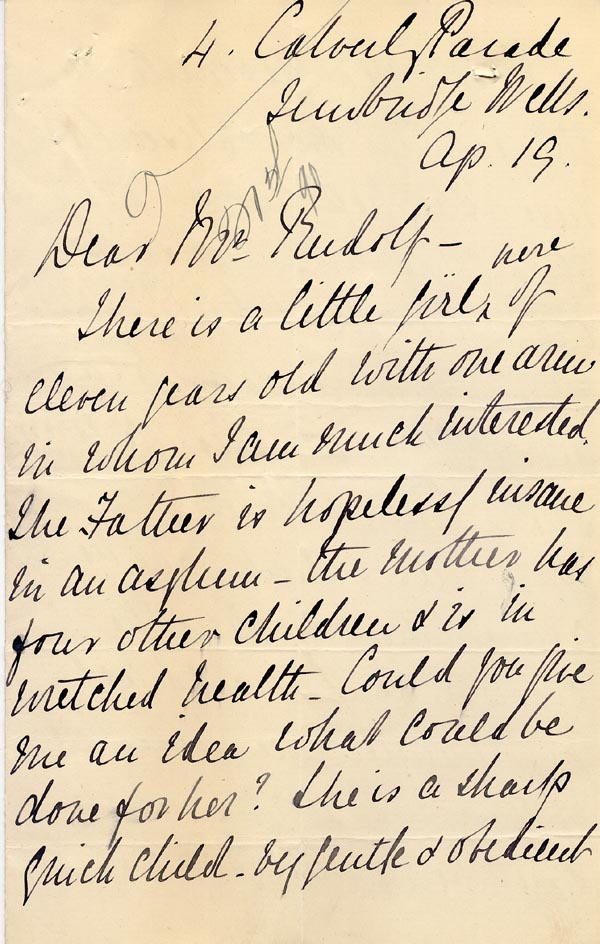 4. Calverly Parade
Tunbridge Wells.
Ap. 19.
Dear Mr. Rudolf —
here
There is a little girl ‸ of
eleven years old with one arm
in whom I am much interested.
The Father is hopelessly insane
in an asylum – the mother has
four other children & is in
wretched health – Could you give
me an idea what could be
done for her? She is a sharp
quick child – vy gentle & obedient